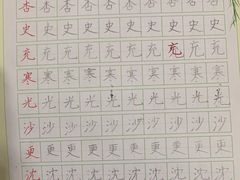 杏 杏 杏 杏 杏 杏 杏 杏 杏
史 史 史 史 史 史 史 史 史
充 充 充 充 充 充 充 充 充
寒 寒 寒 寒 寒 寒 寒 寒 寒
光 光 光 光 光 光 光 光
沙 沙 沙 沙 沙 沙 沙 沙 沙
更 更 更 更 更 更 更 更 更
沈 沈 沈 沈 沈 沈 沈 沈 沈